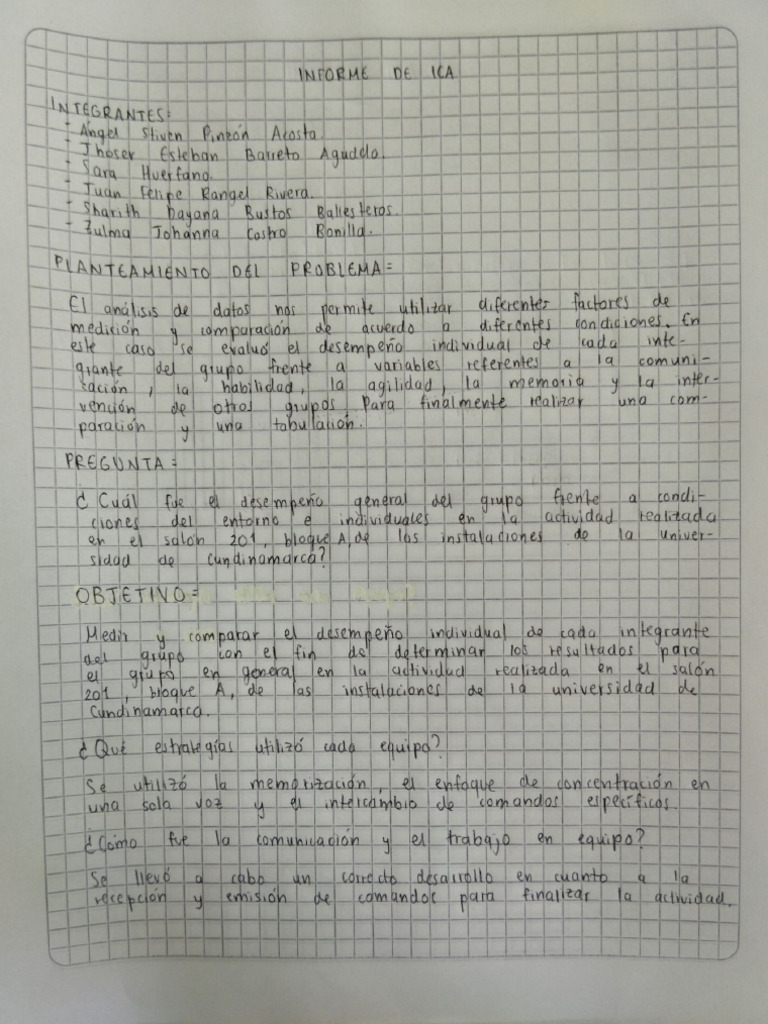 INFORME DE ICA
INTEGRANTES:
- Ángel Stiven Pinzón Acosta.
- Jhoser Esteban Barreto Agudelo.
- Sara Huerfano.
- Juan Felipe Rangel Rivera.
- Sharith Dayana Bustos Ballesteros.
- Zulma Johanna Castro Bonilla.
PLANTEAMIENTO DEL PROBLEMA:
El análisis de datos nos permite utilizar diferentes factores de
medición y comparación de acuerdo a diferentes condiciones. En
este caso se evaluó el desempeño individual de cada inte-
grante del grupo frente a variables referentes a la comuni-
cación, la habilidad, la agilidad, la memoria y la inter-
vención de otros grupos. Para finalmente realizar una com-
paración y una tabulación.
PREGUNTA:
¿Cuál fue el desempeño general del grupo frente a condi-
ciones del entorno e individuales en la actividad realizada
en el salón 201, bloque A, de las instalaciones de la univer-
sidad de Cundinamarca?
OBJETIVO:
Medir y comparar el desempeño individual de cada integrante
del grupo con el fin de determinar los resultados para
el grupo en general en la actividad realizada en el salón
201, bloque A, de las instalaciones de la universidad de
Cundinamarca.
¿Qué estrategias utilizó cada equipo?
Se utilizó la memorización, el enfoque de concentración en
una sola voz y el intercambio de comandos específicos.
¿Cómo fue la comunicación y el trabajo en equipo?
Se llevó a cabo un correcto desarrollo en cuanto a la
recepción y emisión de comandos para finalizar la actividad.